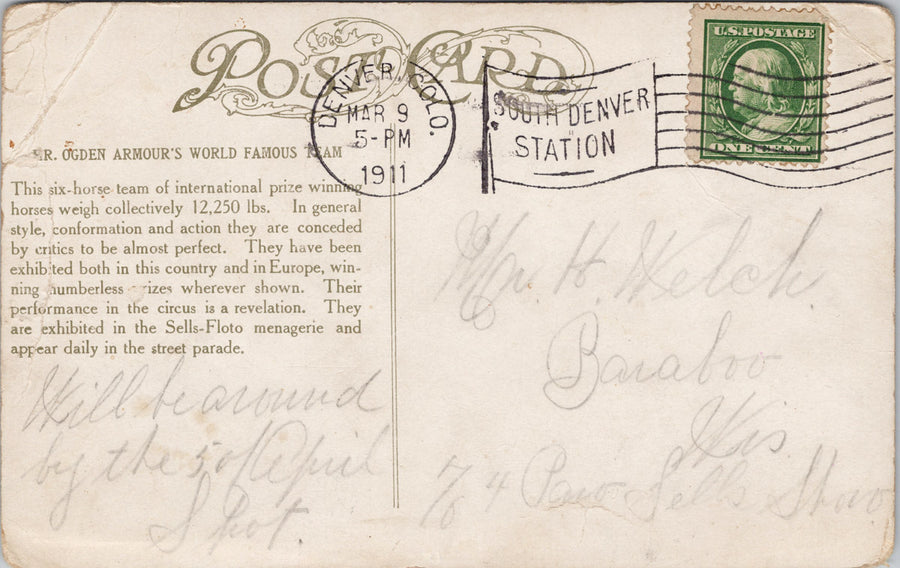 POST CARD
U.S. POSTAGE
ONE CENT
DENVER, COLO.
MAR 9
5-PM
1911
SOUTH DENVER
STATION
R. OGDEN ARMOUR'S WORLD FAMOUS TEAM
This six-horse team of international prize winning
horses weigh collectively 12,250 lbs. In general
style, conformation and action they are conceded
by critics to be almost perfect. They have been
exhibited both in this country and in Europe, win-
ning numberless prizes wherever shown. Their
performance in the circus is a revelation. They
are exhibited in the Sells-Floto menagerie and
appear daily in the street parade.
Will be around
by the 5 of April
Spot.
H. Welch.
Baraboo
Wis.
4 Paw Sells Show